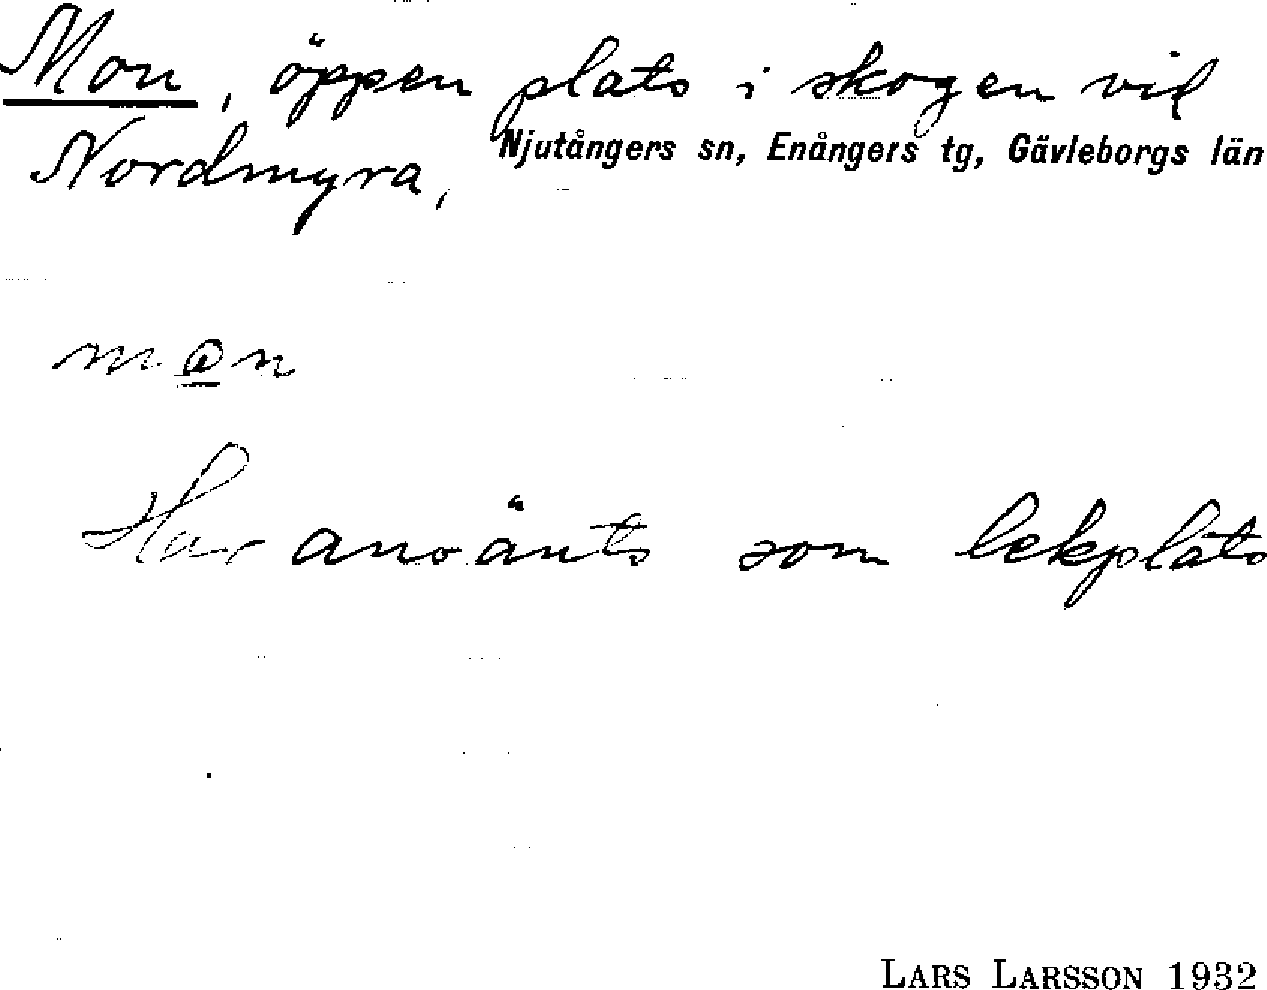 Mon, öppen plats i skogen vid
Nordmyra, Njutångers sn, Enångers tg, Gävleborgs län
Har använts som lekplats
LARS LARSSON 1932